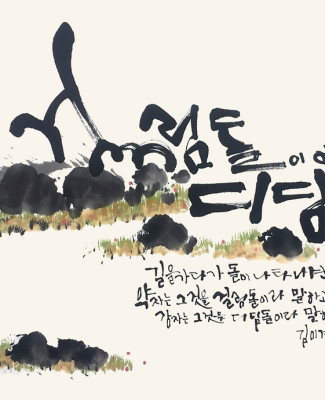 걸림돌이
디딤
길을 가다가 돌이 나타나면
약자는 그것을 걸림돌이라 말하고
강자는 그것을 디딤돌이라 말하
김이